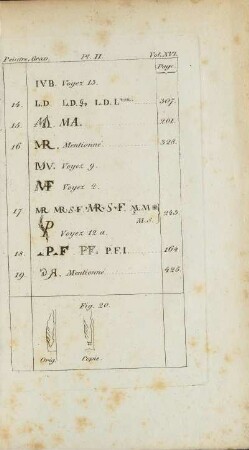 Peintre. Grav. Pl. II. Vol. XVI.
Page.
IVB. Voyez 13.
14. L.D. L.D.
307.
15. MÆ. 201.
16. MR. Mentionné 328.
MV. Voyez 9.
MF Voyez 2.
17. MR MR·S·F MR·S·F 243.
M.S.
Voyez 12 a.
18. P.F PF. P.F.I. 164
19. Mentionné 425.
Fig. 20.
Orig. Copie.